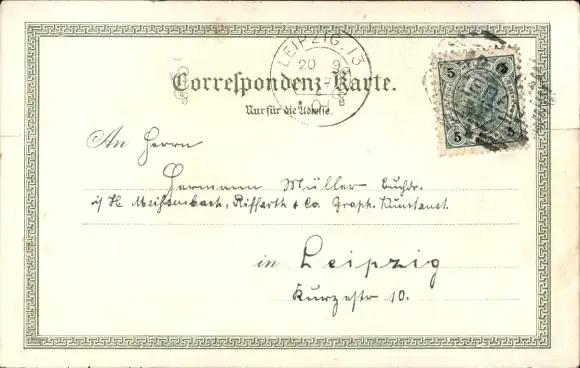 LEIPZIG.13
20 9
01
Correspondenz-Karte.
Nur für die Adresse.
5 5
5 5
An Herrn
Hermann Müller Buchdr.
i/H Meissenbach, Riffarth + Co. Graph. Kunstanst.
in Leipzig
Kurzestr 10.